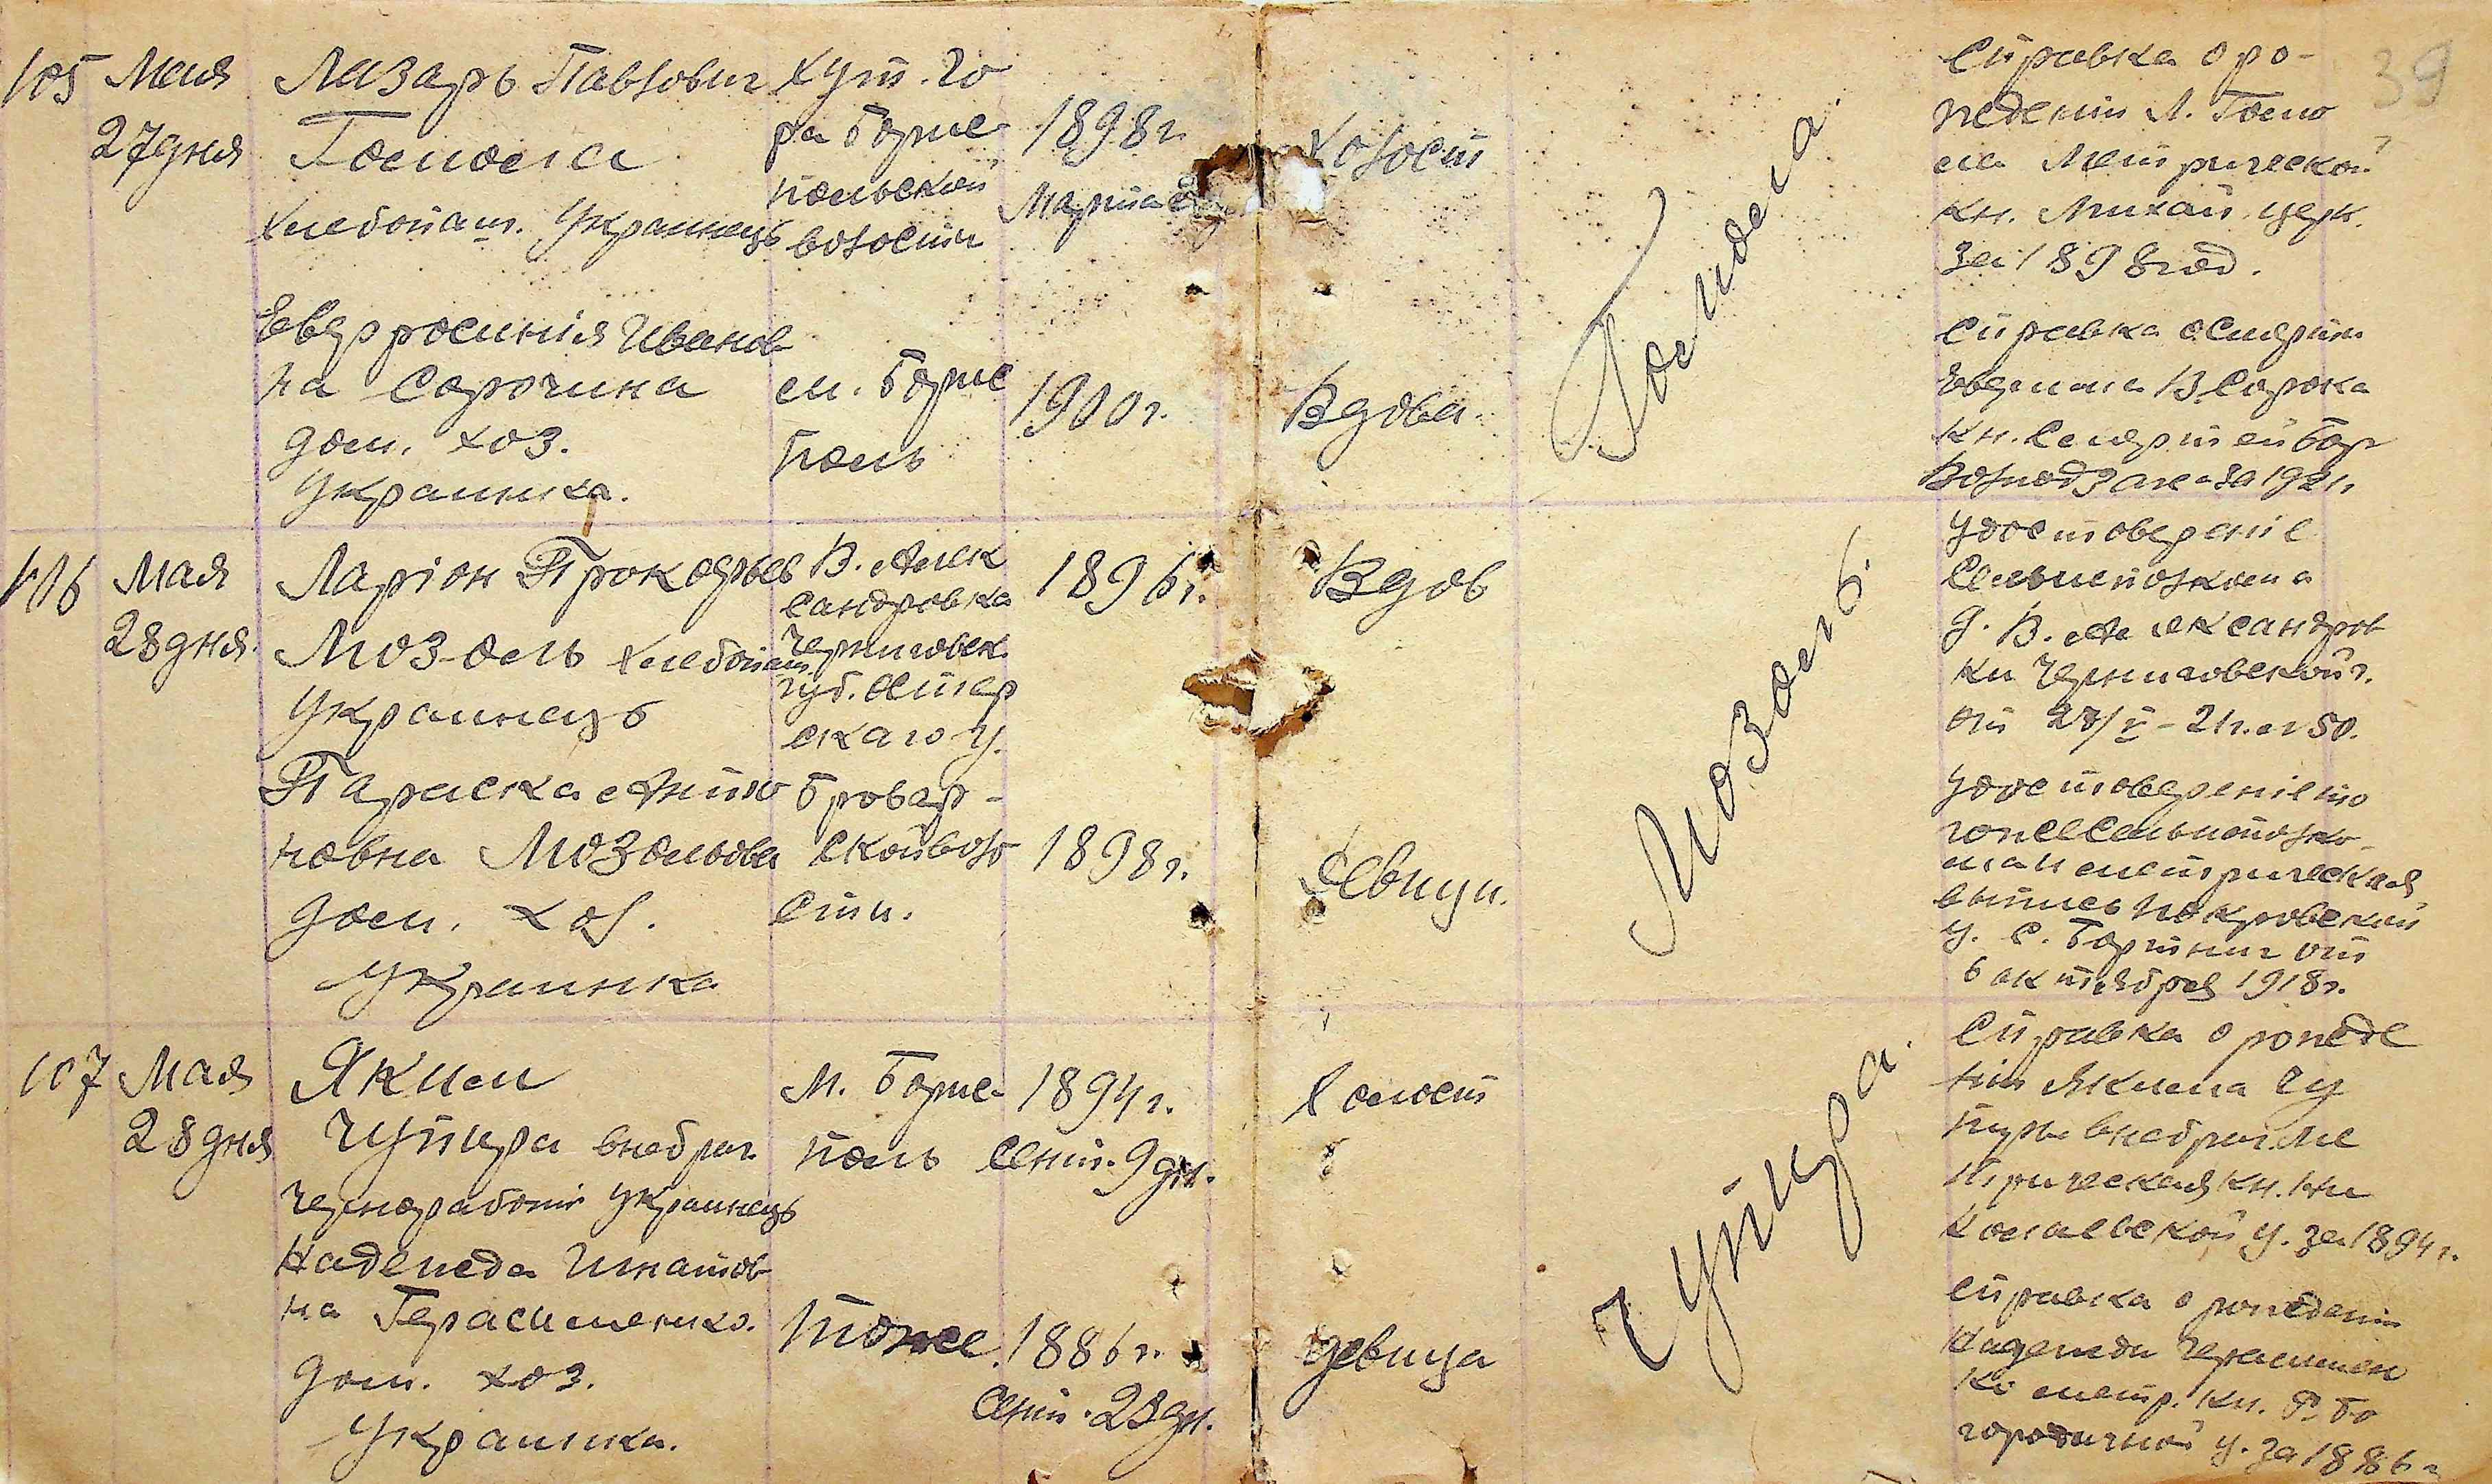 39
105 Мая
27 дня
Лазарь Павлович
Гоемоела
Хлебопаш. Украинецъ
Хут. Го
ра Борис
польской
волости
1898 г.
Марта
Холост
Справка о ро-
ждении Л. Гоемо
ела Метрической
кн. Михайл. церк.
за 1898 год.
Евфросиния Иванов
на Сорочина
дом. хоз.
Украинка.
м. Борис
поль
1900 г.
Вдова
Справка о смерти
Сорока
кн. Смертей Бор
Волподзага за 1921 г.
106 Мая
28 дня.
Ларіон Прокофьев
Мозоль хлебопаш
Украинецъ
В. Алек
сандровка
Черниговск.
губ. Остер
скаго у.
1896 г.
Вдов
Мозоль.
Удостоверенiе
Сельисполкома
д. В. Александров
ки Черниговской г.
от 28/V - 21 г. за 50.
Параска Антио
новна Мозольова
дом. хоз.
Украинка
Бровар-
ской воло
сти.
1898 г.
Девица.
Удостоверенiе то
гоже Сельисполко-
ма и метрическая
выпись Покровской
ц. с. Бортнич от
6 октября 1918 г.
107 Мая
28 дня
Яким
Чупира внебрач.
Чернорабочiй Украинецъ
м. Борис-
поль
1894 г.
Сент. 9 дн.
Холост
Чупира.
Справка о рожде
нiи Якима Чу
пиры внебрач. Ме
трическая кн. Ни
колаевской ц. за 1894 г.
Надежда Игнатов
на Герасименко.
дом. хоз.
Украинка.
Тоже.
1886 г.
Сент. 28 дн.
девица
Справка о рождении
Надежды Герасимен
ко метр. кн. Р. Бо
городичной ц. за 1886 г.